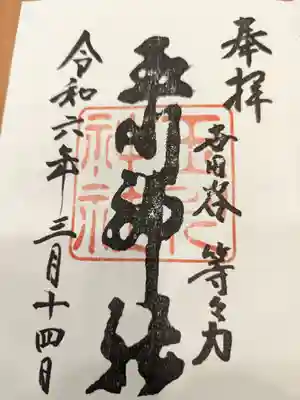 奉拝
世田谷 等々力
玉川神社
玉川神社
令和六年三月十四日